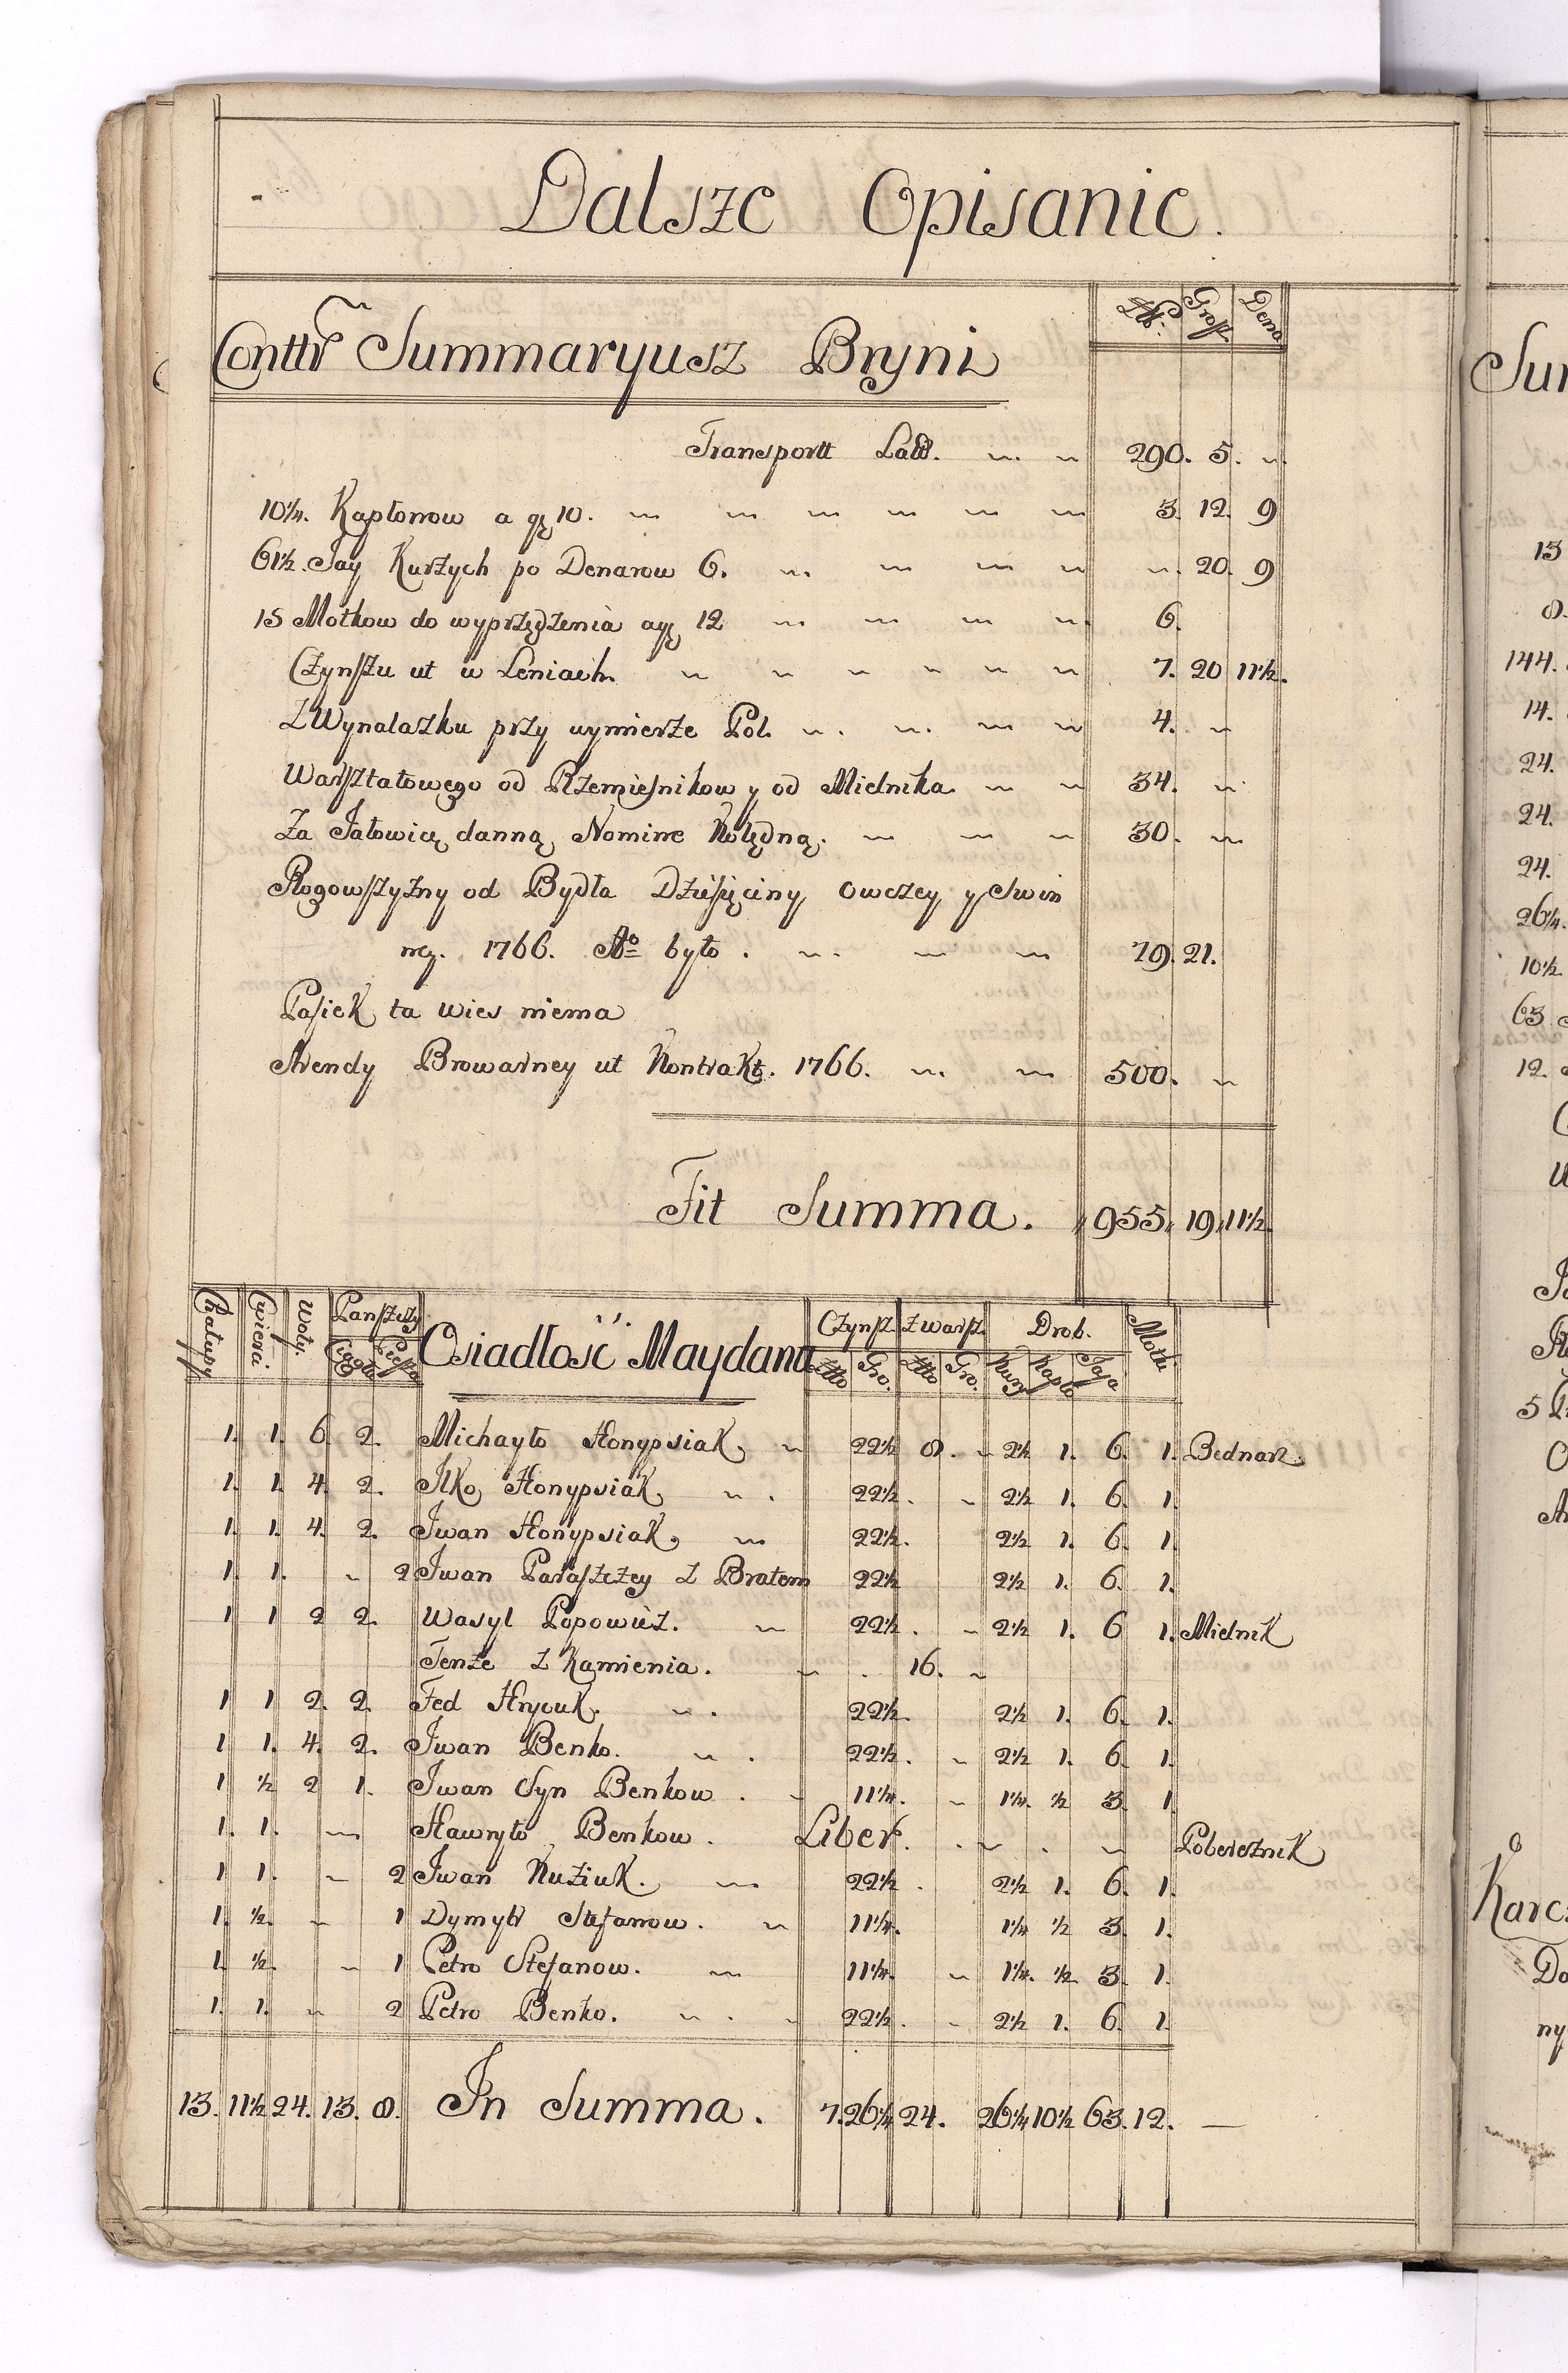 Dalsze Opisanie.
Złłi. Grosz Dena
Conttr Summaryusz Bryni
Transportt 290. 5.
10¼. Kapłonow a gr 10. 3. 12. 9
61½ Jay Kurzych po Denarow 6. 20. 9
15 Motkow do wyprzędzenia a gr 12 6.
Czynszu ut w Leniach. 7. 20 11½.
Z Wynalazku przy wymierze Pol. 4.
Warsztatowego od Rzemiesnikow y od Mielnika. 34.
Za Jałowicę danną Nomine Kolędną. 30.
Rogowszyzny od Bydła Dziesięciny owczey y Swin
ney. 1766. Ao było. 79. 21.
Pasiek ta wies niema
Arendy Browarney ut Kontrakt. 1766. 500.
Fit Summa. 955. 19. 11½.
Chałupy Cwierci Woły. Pansczyz Ciągła Piesza Osiadłosć Maydanu Czynsz. Złło Gro. z warsz. Złło Gro. Drob. Kury Kapło Jaja Motk
1. 1. 6. 2. Michayło Honypsiak 22½ 8. 2½ 1. 6. 1. Bednarz.
1. 1. 4. 2. Ilko Honypsiak 22½. 2½ 1. 6. 1.
1. 1. 4. 2. Iwan Honypsiak 22½. 2½ 1. 6. 1.
1 1. 2 Iwan Paraszczey z Bratem 22½ 2½ 1. 6. 1.
1 1 2 2. Wasyl Popowicz. 22½. 2½ 1. 6 1. Mielnik
Tenże z Kamienia. 16.
1 1 2. 2. Fed Hrycuk. 22½. 2½ 1. 6. 1.
1 1. 4. 2. Iwan Benko. 22½. 2½ 1. 6. 1.
1 ½ 2 1. Iwan Syn Benkow. 11¼. 1¼. ½ 3. 1
1. 1. Hawryło Benkow. Liber. Pobereznik
1 1. 2 Iwan Kuziuk. 22½. 2½ 1. 6. 1.
1. ½. 1 Dymytr Stefanow. 11¼. 1¼ ½ 3. 1.
1. ½. 1 Petro Stefanow. 11¼. 1¼. ½ 3. 1.
1. 1. 2 Petro Benko. 22½. 2½ 1. 6. 1.
13. 11½ 24. 13. 8. In Summa. 7. 26¼ 24. 26¼ 10½ 63. 12.
Sum
13
8.
144.
14.
24.
24.
24.
26¼.
10½
63
12.
5
Karcz
Do
ny